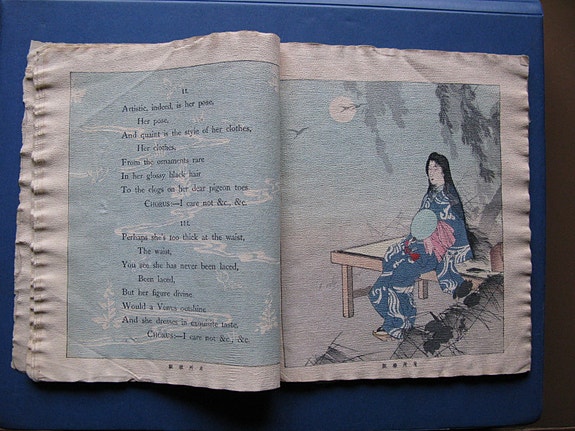 II.
Artistic, indeed, is her pose,
Her pose,
And quaint is the style of her clothes,
Her clothes,
From the ornaments rare
In her glossy black hair
To the clogs on her dear pigeon toes
CHORUS:—I care not &c., &c.
III.
Perhaps she's too thick at the waist,
The waist,
You see she has never been laced,
Been laced,
But her figure divine
Would a Venus outshine
And she dresses in exquisite taste.
CHORUS:—I care not &c., &c.